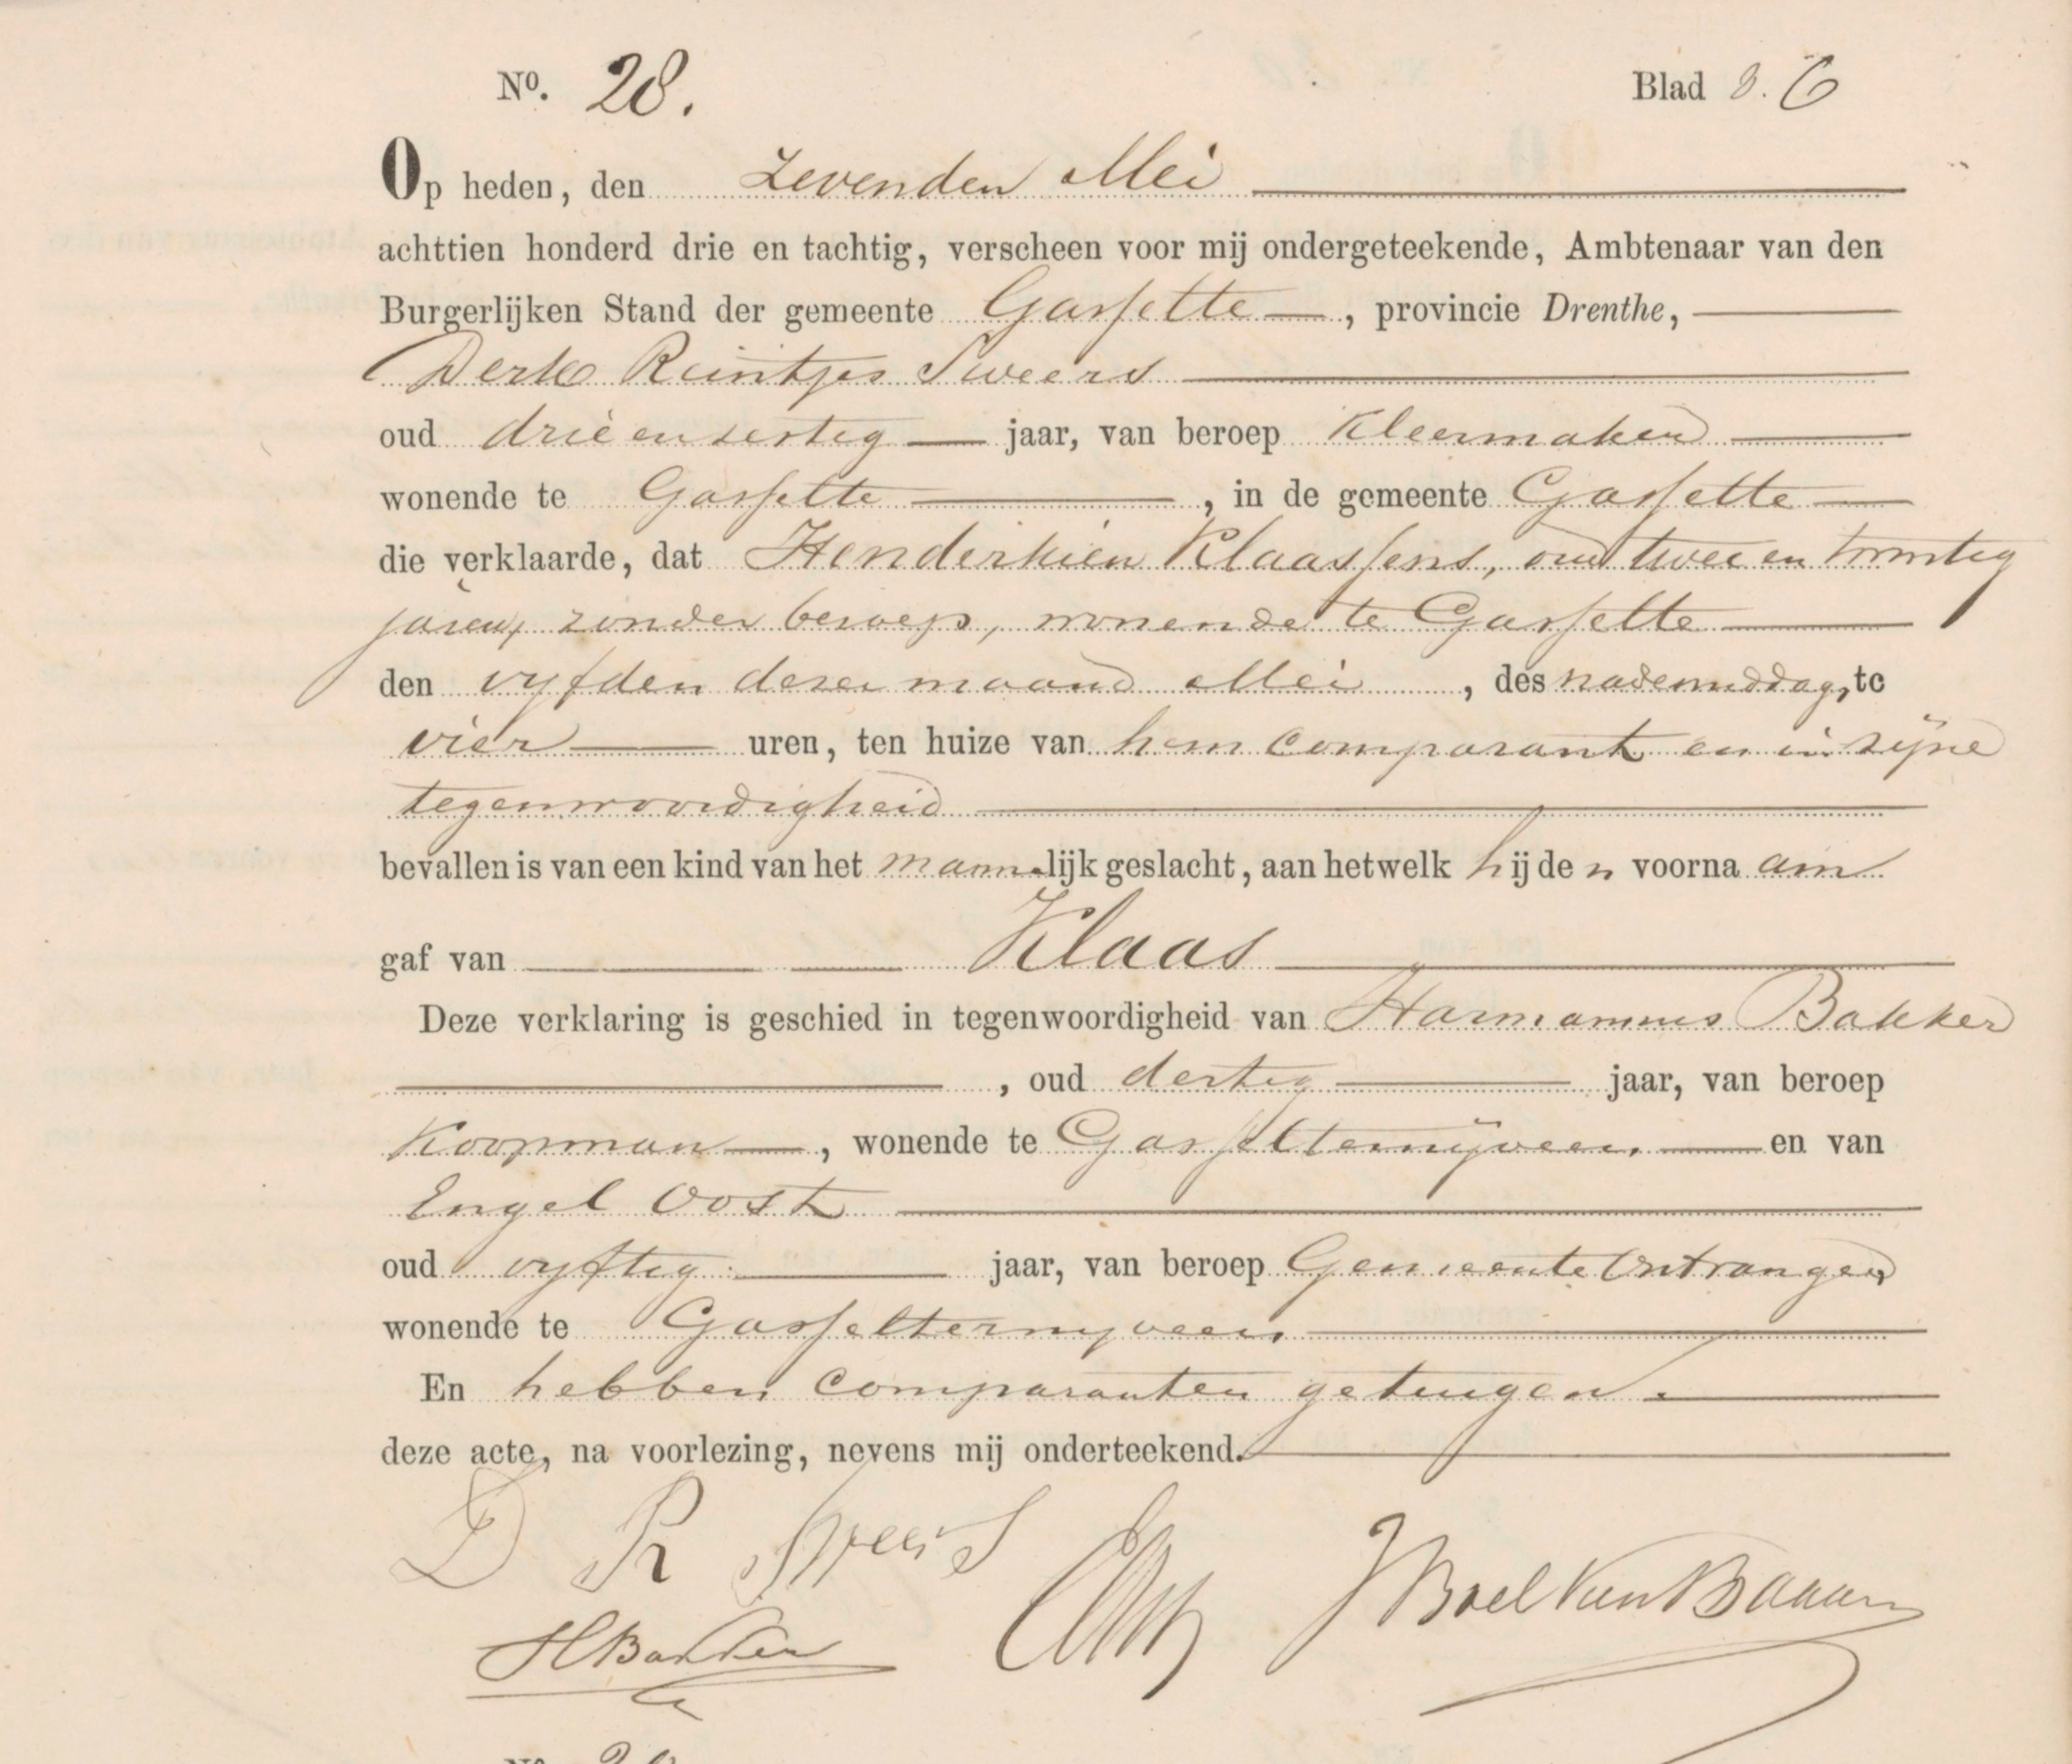 No. 28. Blad 8. 6
Op heden, den Zevenden Mei
achttien honderd drie en tachtig, verscheen voor mij ondergeteekende, Ambtenaar van den
Burgerlijken Stand der gemeente Gasselte, provincie Drenthe,
Derk Reintjes Sweers
oud drie en sestig jaar, van beroep Kleermaker
wonende te Gasselte, in de gemeente Gasselte
die verklaarde, dat Henderkien Klaassens, oud twee en
jaren, zonder beroep, wonende te Gasselte
den vyfden dezer maand Mei, des nademiddag, te
vier uren, ten huize van hem comparant en in zijne
tegenwoordigheid
bevallen is van een kind van het mannelijk geslacht, aan hetwelk hij de n voorna am
gaf van Klaas
Deze verklaring is geschied in tegenwoordigheid van Harmannus Bakker
, oud dertig jaar, van beroep
Koopman, wonende te Gasselternijveen. en van
Engel Oost
oud vyftig jaar, van beroep Gemeente Ontvanger
wonende te Gasselternyveen.
En hebben comparanten getuigen
deze acte, na voorlezing, nevens mij onderteekend.
D R Sweers
HBakker